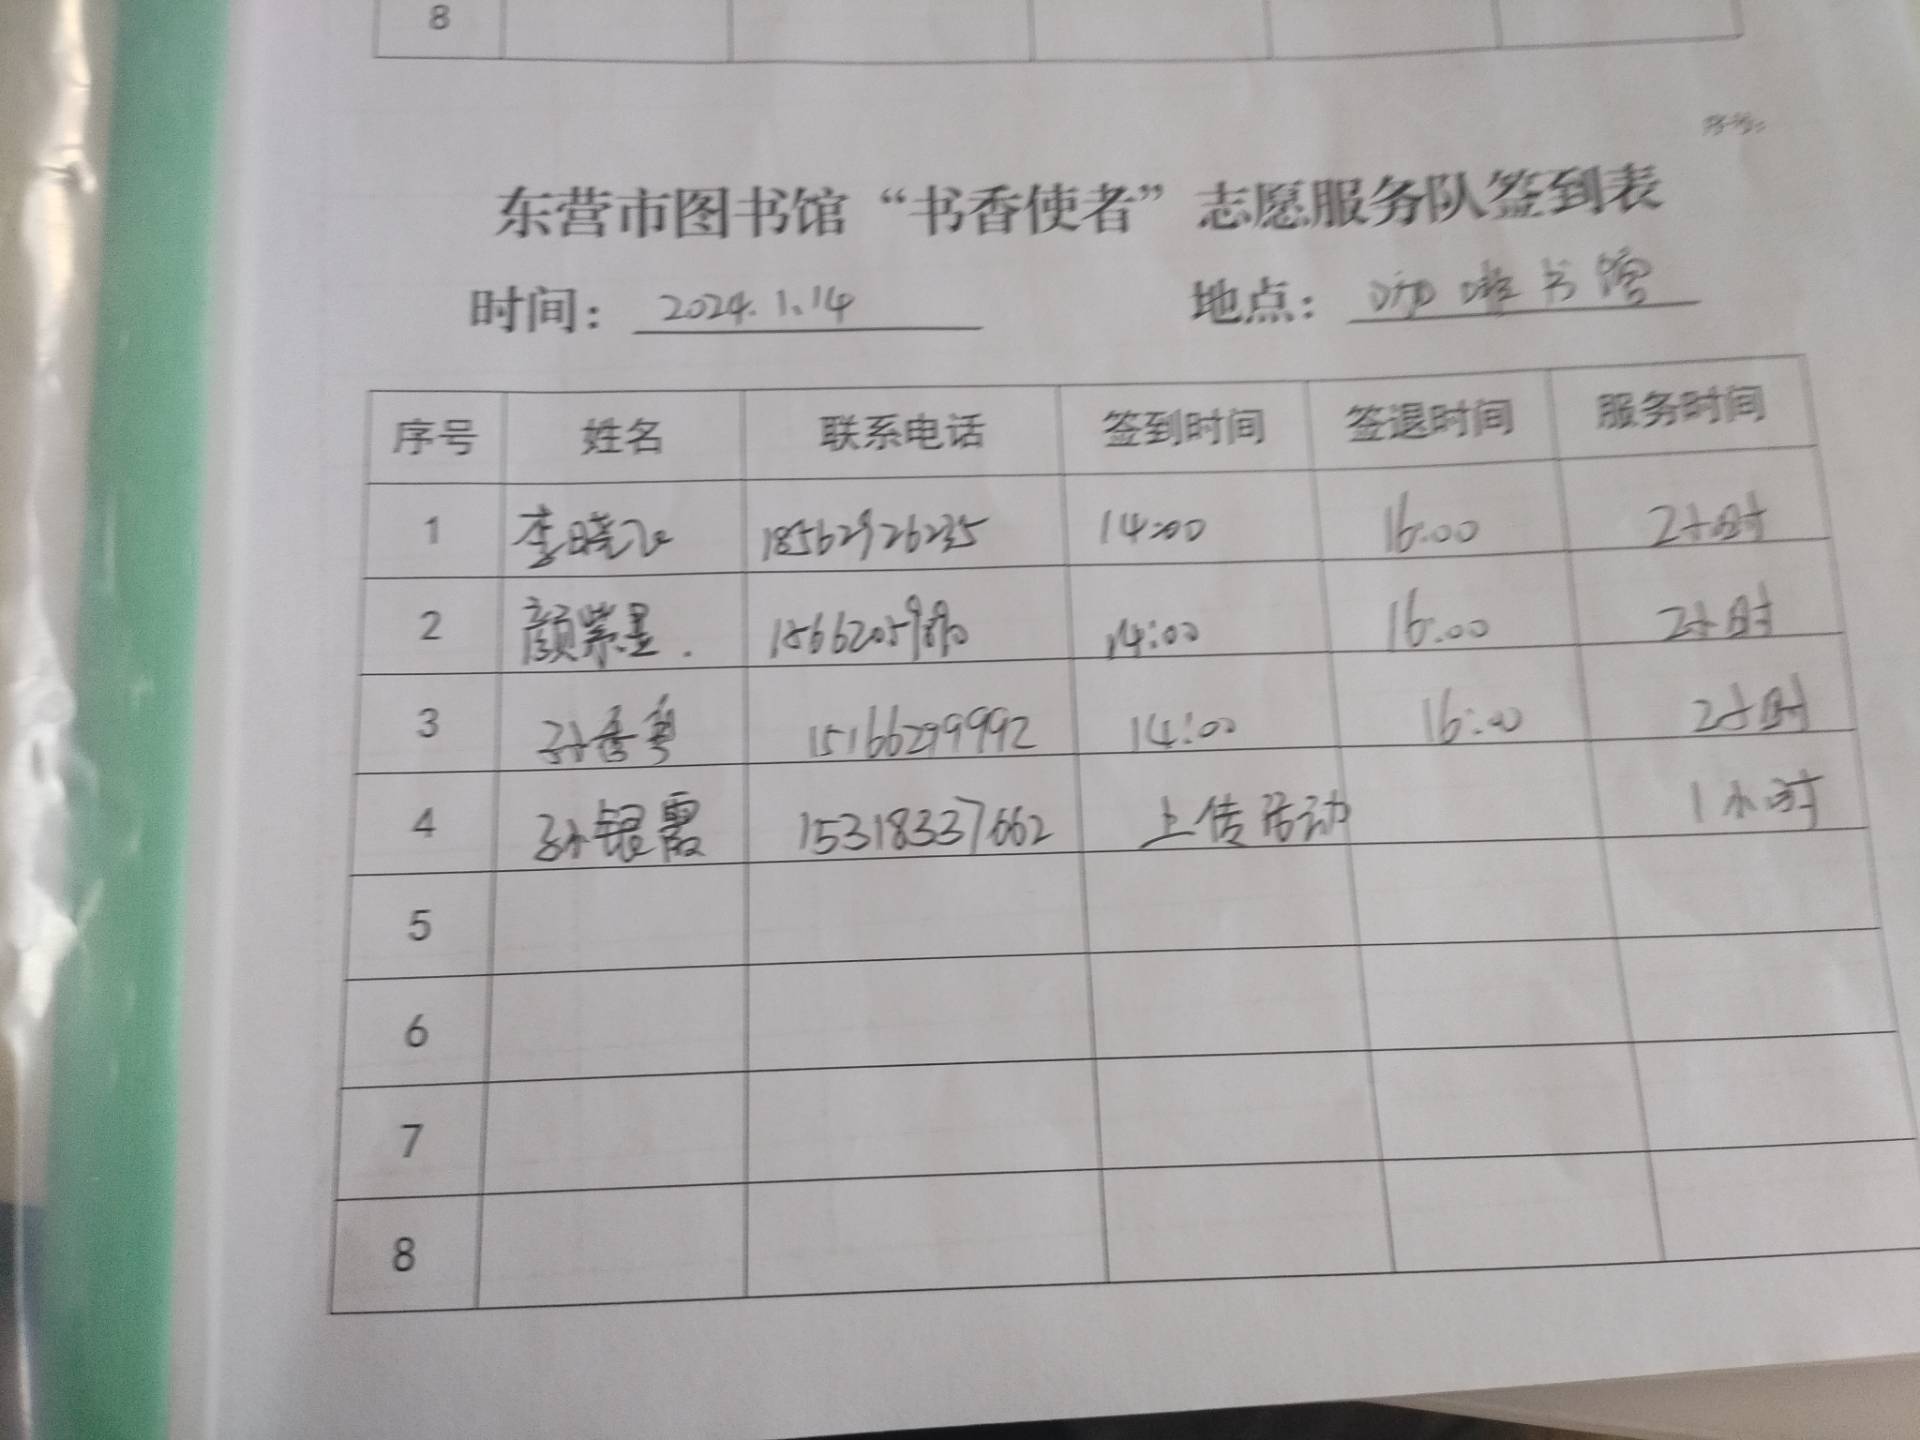 8
东营市图书馆“书香使者”志愿服务队签到表
时间： 2024.1.14 地点： 咖啡书馆
序号 姓名 联系电话 签到时间 签退时间 服务时间
1 李晓飞 18562926235 14:00 16:00 2小时
2 颜紫墨. 14:00 16:00 2小时
3 孙香粤 15166299992 14:00 16:00 2小时
4 孙银霞 15318337662 上传活动 1小时
5
6
7
8